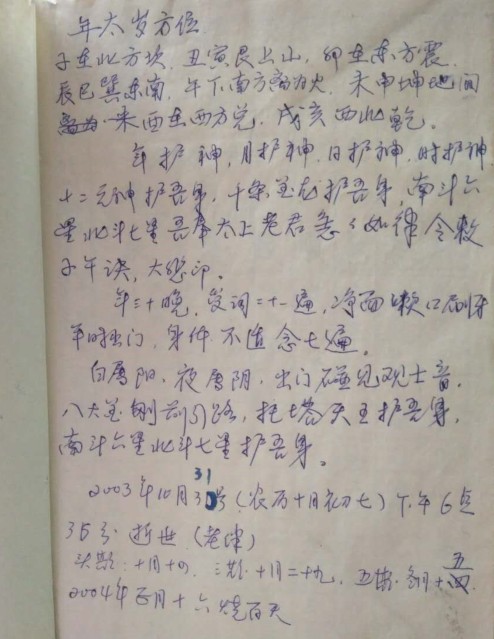 年太岁方位
子在北方坎，丑寅艮上山，卯在东方震，
辰巳巽东南，午下南方离为火，未申坤地间
酉在西方兑，戌亥西北乾。
年护神，月护神，日护神，时护神
十二元神护吾身，十条金龙护吾身，南斗六
星北斗七星吾奉太上老君急急如律令敕
子午诀，大 印。
年三十晚，受词二十一遍，净面漱口刷牙
平时出门，身体不适念七遍
白属阳，夜属阴，出门碰见观士音，
八大金刚前引路，托塔天王护吾身，
南斗六星北斗七星护吾身。
2003年10月31号（农历十月初七）下午6点
35分 逝世（老伴）
头期：十月十四，三期：十月二十九，五期：
2004年正月十六烧百天